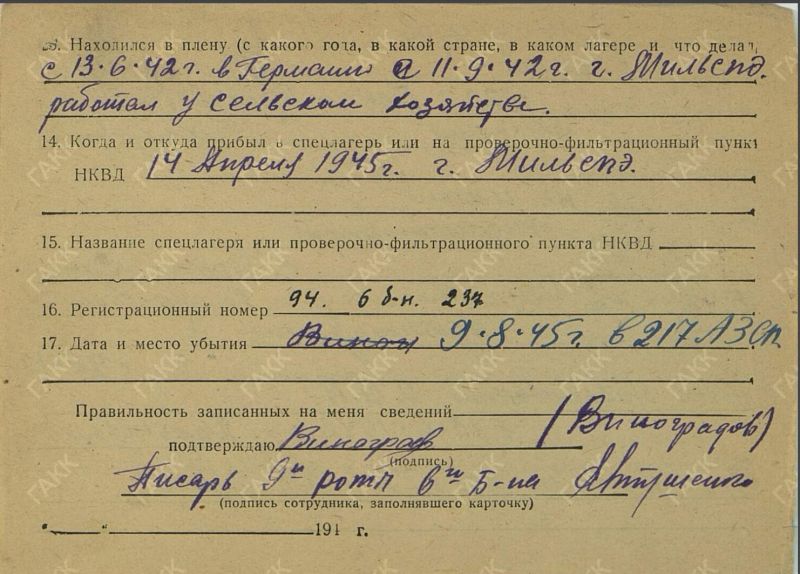 13. Находился в плену (с какого года, в какой стране, в каком лагере и что делал
с 13.6.42г. в Германию 11.9.42г. г. Мильспэ.
работал у сельском хозяйстве.
14. Когда и откуда прибыл в спецлагерь или на проверочно-фильтрационный пункт
НКВД 14 Апреля 1945г. г. Мильспэ.
15. Название спецлагеря или проверочно-фильтрационного пункта НКВД
16. Регистрационный номер 94. 6 б-н. 237
17. Дата и место убытия 9.8.45г. в 217 АЗСп.
Правильность записанных на меня сведений (Виноградов)
подтверждаю Виноградов
(подпись)
Писарь 9й роты 6го Б-на
(подпись сотрудника, заполнявшего карточку)
" " 194 г.
ГАКК